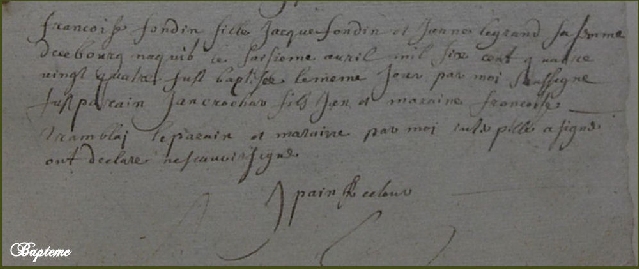 francoisse fondin fille Jacque fondin et Janne legrand sa femme
de ce bourg naquit le saisieme auril mil six cent quatre
vingt quatre fust baptisee le meme Jour par moi soussigne
fust parain Jan fils Jan et maraine francoise
tramblai le parain et maraine par moi a signe
ont declare ne scauoir signe
Bapteme